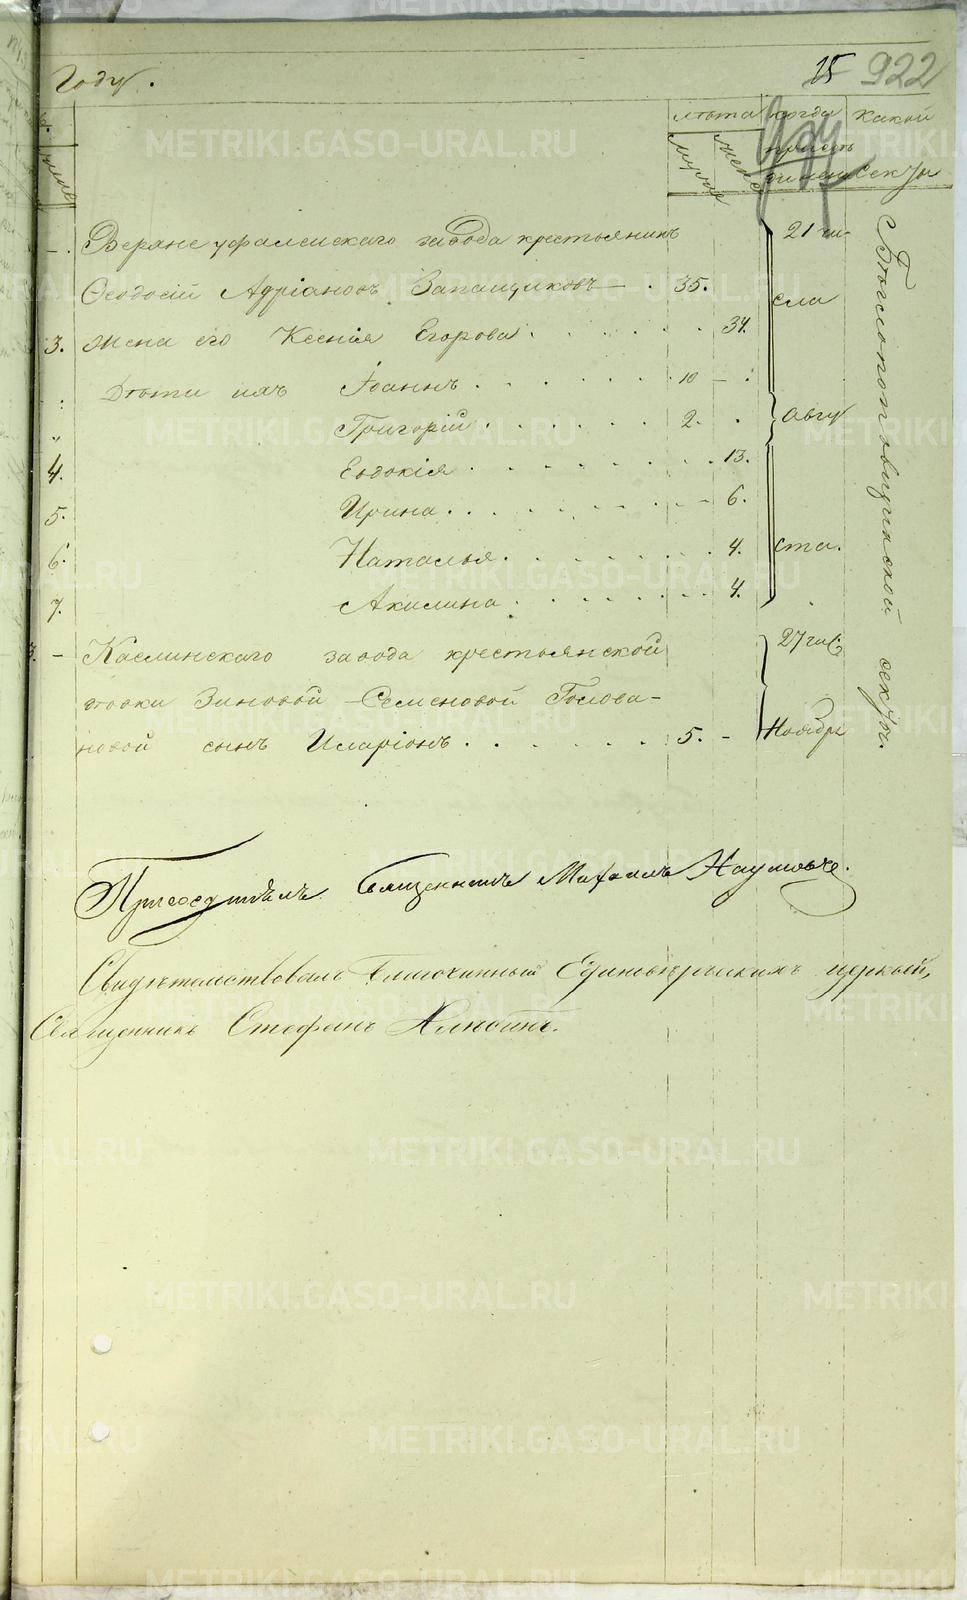 Году.
25 922
лѣта когда какой
мужск женск присоединен секты
Верхне уфалейскаго завода крестьянинъ 21 чи-
Ѳеодосій Адріановъ Запащиковъ — . 35. сла
3. Жена его Ксенія Егорова . . . . . . 34.
Дѣти ихъ Іоаннъ . . . . . . 10 —
Григорій . . . . . . 2. Авгу
4. Евдокія . . . . . . 13.
5. Ирина . . . . . . — 6.
6. Наталья . . . . . . 4. ста.
7. Акилина . . . . . . 4.
— Каслинскаго завода крестьянской 27 числ
дѣвки Зиновьи Семеновой Голова-
новой сынъ Иларіонъ . . . . . . 5. — Ноября
секты.
Присоединилъ Священникъ Михаилъ Наумовъ.
Свидѣтельствовалъ Благочинный Единовѣрческихъ церквей,
Священникъ Стефанъ Хлюбинъ.
METRIKI.GASO-URAL.RU